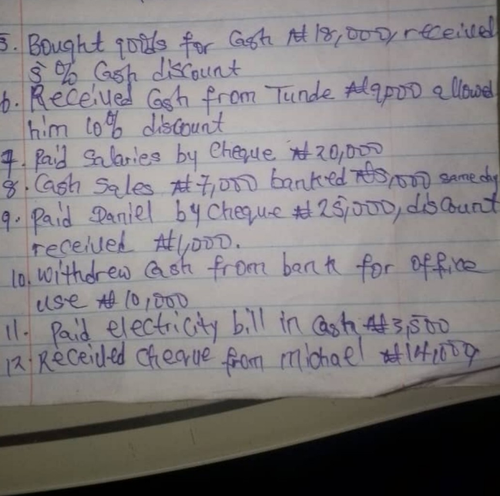 5. Bought goods for Cash ₦18,000, received
5% Cash discount
6. Received Cash from Tunde ₦9,000 allowed
him 10% discount
7. Paid Salaries by Cheque ₦20,000
8. Cash Sales ₦7,000 banked ₦5,000 same day
9. Paid Daniel by Cheque ₦25,000, discount
received ₦1,000.
10. Withdrew Cash from bank for office
use ₦10,000
11. Paid electricity bill in Cash ₦3,500
12. Received Cheque from Michael ₦14,000